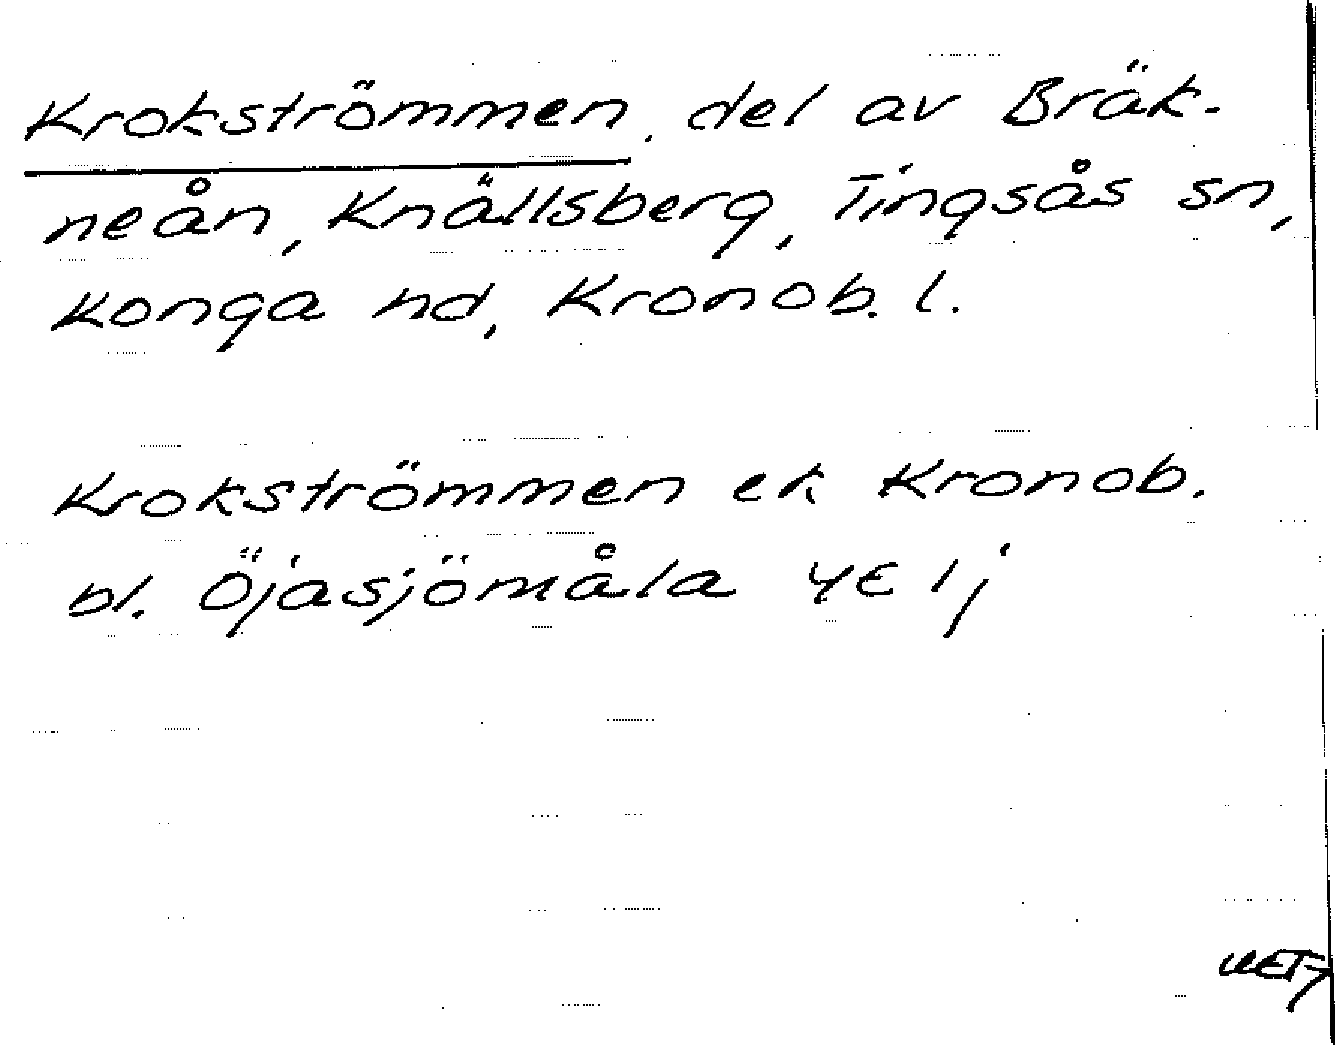 Krokströmmen, del av Bräk-
neån, Knällsberg, Tingsås sn,
Konga hd, Kronob. l.
Krokströmmen ek Kronob.
bl. Öjasjömåla 4E 1j